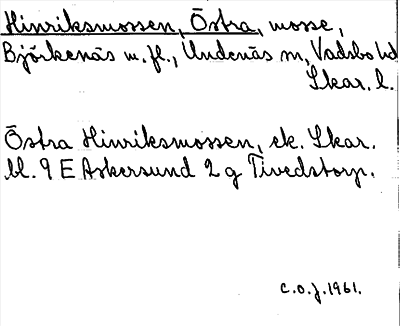 Hinriksmossen, Östra, mosse,
Björkenäs m. fl., Undenäs sn, Vadsbo hd
Skar. l.
Östra Hinriksmossen, ek. Skar.
bl. 9 E Askersund 2 g Tivedstorp.
C.O.J. 1961.